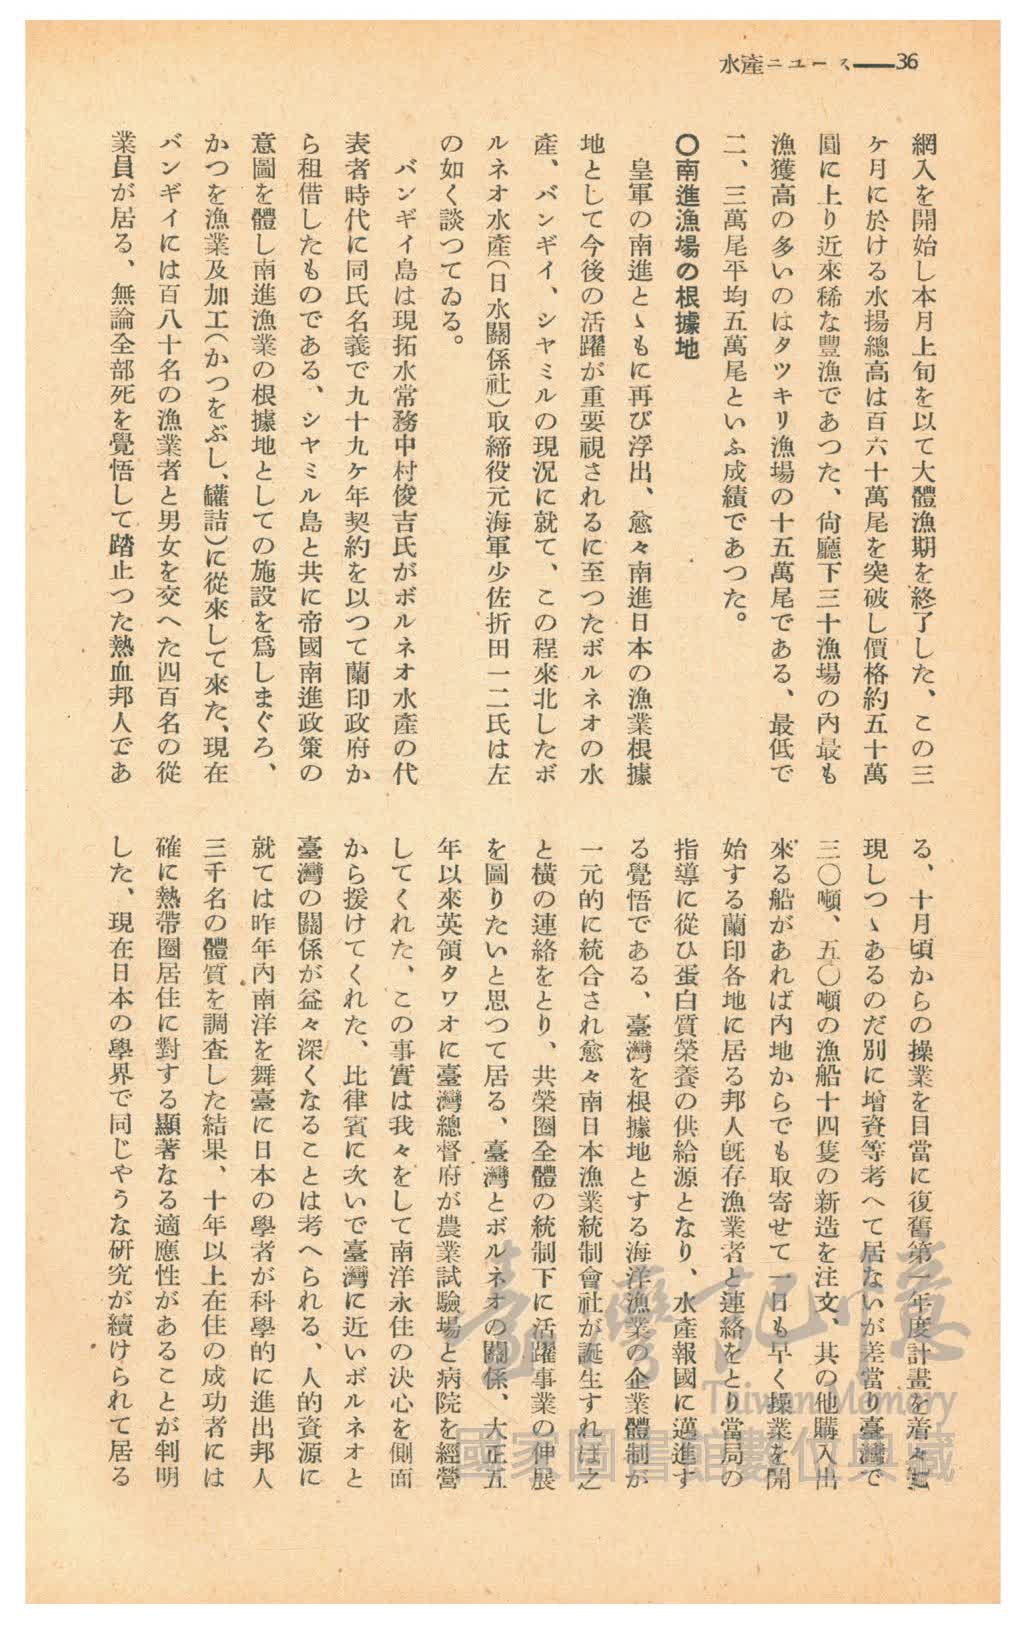 水產ニユース——36
網入を開始し本月上旬を以て大體漁期を終了した、この三
ケ月に於ける水揚總高は百六十萬尾を突破し價格約五十萬
圓に上り近來稀な豐漁であつた、尙廳下三十漁場の內最も
漁獲高の多いのはタツキリ漁場の十五萬尾である、最低で
二、三萬尾平均五萬尾といふ成績であつた。
〇南進漁場の根據地
皇軍の南進とゝもに再び浮出、愈々南進日本の漁業根據
地として今後の活躍が重要視されるに至つたボルネオの水
產、バンギイ、シヤミルの現況に就て、この程來北したボ
ルネオ水產(日水關係社)取締役元海軍少佐折田一二氏は左
の如く談つてゐる。
バンギイ島は現拓水常務中村俊吉氏がボルネオ水產の代
表者時代に同氏名義で九十九ケ年契約を以つて蘭印政府か
ら租借したものである、シヤミル島と共に帝國南進政策の
意圖を體し南進漁業の根據地としての施設を爲しまぐろ、
かつを漁業及加工(かつをぶし、罐詰)に從來して來た、現在
バンギイには百八十名の漁業者と男女を交へた四百名の從
業員が居る、無論全部死を覺悟して踏止つた熱血邦人であ
る、十月頃からの操業を目當に復舊第一年度計畫を着々
現しつゝあるのだ別に增資等考へて居ないが差當り臺灣で
三〇噸、五〇噸の漁船十四隻の新造を注文、其の他購入出
來る船があれば內地からでも取寄せて一日も早く操業を開
始する蘭印各地に居る邦人旣存漁業者と連絡をとり當局の
指導に從ひ蛋白質榮養の供給源となり、水產報國に邁進す
る覺悟である、臺灣を根據地とする海洋漁業の企業體制が
一元的に統合され愈々南日本漁業統制會社が誕生すれば之
と橫の連絡をとり、共榮圈全體の統制下に活躍事業の伸展
を圖りたいと思つて居る、臺灣とボルネオの關係、大正五
年以來英領タワオに臺灣總督府が農業試驗場と病院を經營
してくれた、この事實は我々をして南洋永住の決心を側面
から援けてくれた、比律賓に次いで臺灣に近いボルネオと
臺灣の關係が益々深くなることは考へられる、人的資源に
就ては昨年內南洋を舞臺に日本の學者が科學的に進出邦人
三千名の體質を調査した結果、十年以上在住の成功者には
確に熱帶圈居住に對する顯著なる適應性があることが判明
した、現在日本の學界で同じやうな硏究が續けられて居る
臺灣記憶
Taiwan Memory
國家圖書館數位典藏